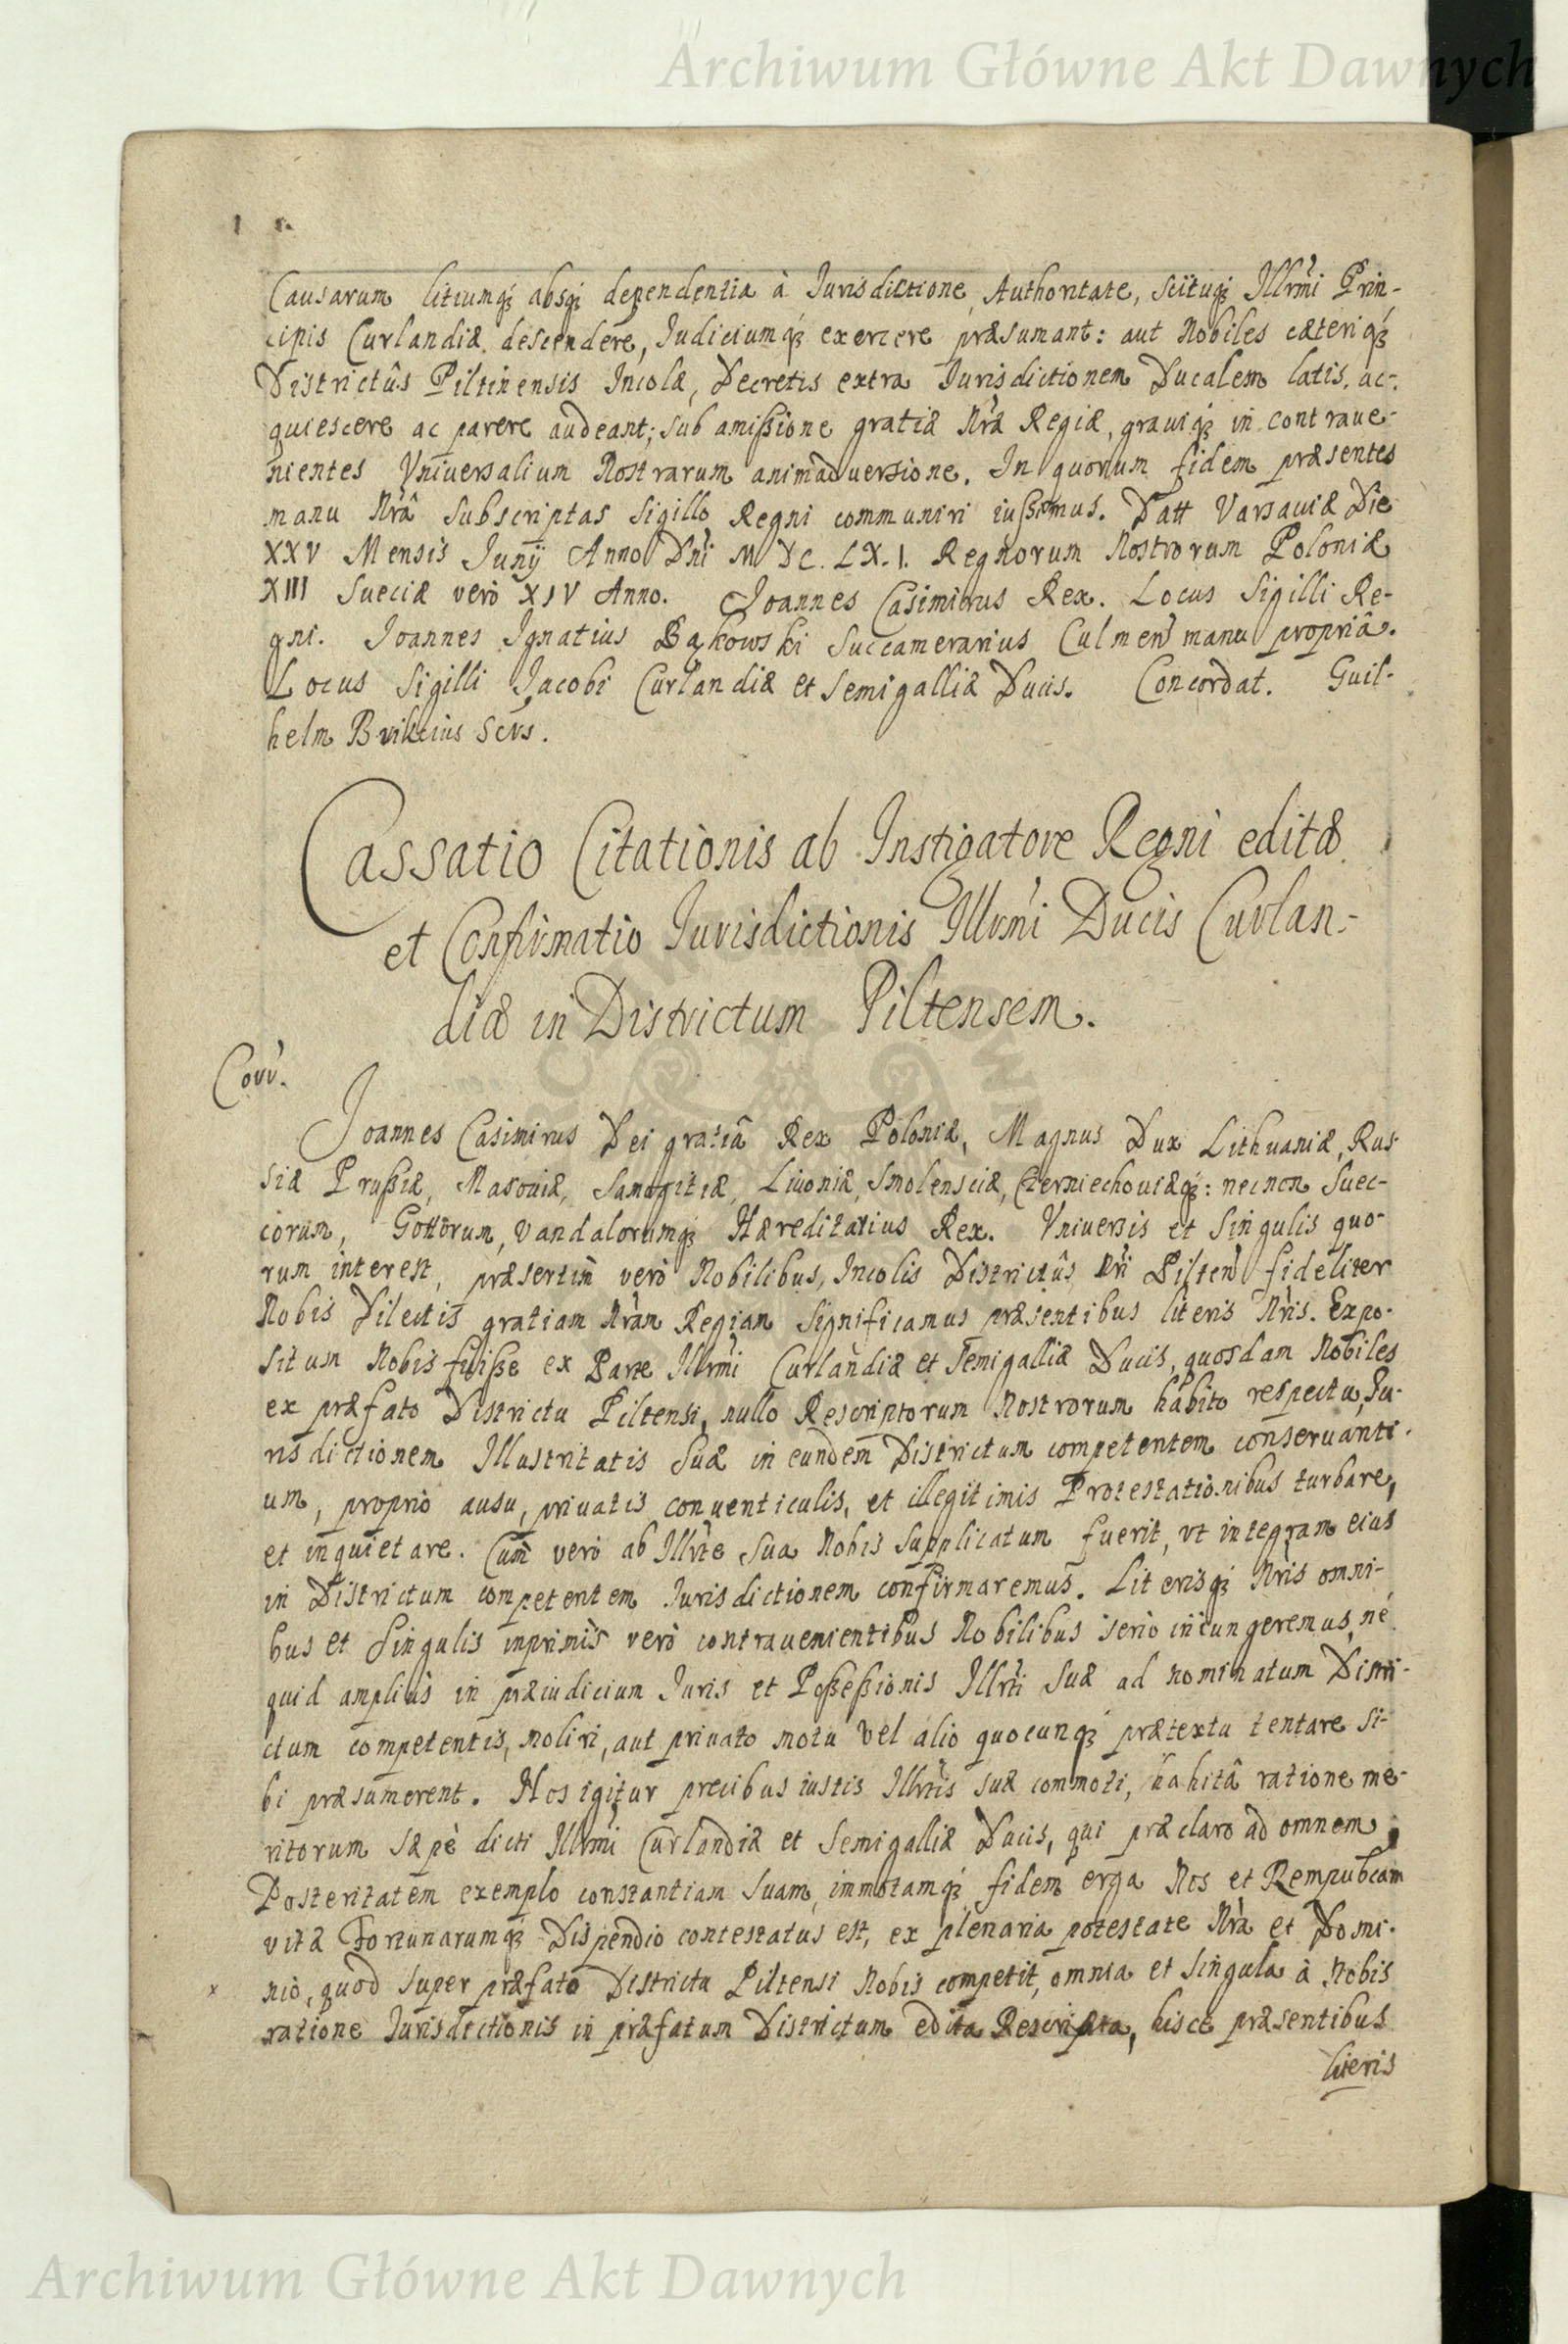 Archiwum Główne Akt Dawnych
Causarum litiumq; absq; dependentia à Iurisdictione, Authoritate, Scituq; Illrmi Prin-
cipis Curlandiæ descendere, Iudiciumq; exercere præsumant: aut Nobiles cæteriq;
Districtûs Piltinensis Incolæ, Decretis extra Iurisdictionem Ducalem latis, ac-
quiescere ac parere audeant; sub amißione gratiæ Nræ Regiæ, grauiq; in contraue-
nientes Vniuersalium Nostrarum animaduersione. In quorum fidem præsentes
manu Nrâ Subscriptas Sigillo Regni communiri iußimus. Datt Varsauiæ Die
XXV Mensis Junÿ Anno Dni M DC. LX. I. Regnorum Nostrorum Poloniæ
XIII Sueciæ verò XIV Anno. Joannes Casimirus Rex. Locus Sigilli Re-
gni. Joannes Ignatius Bąkowski Succamerarius Culmens manu propriâ.
Locus Sigilli Jacobi Curlandiæ et Semigalliæ Ducis. Concordat. Guil-
helm
Cassatio Citationis ab Instigatore Regni editæ
et Confirmatio Iurisdictionis Illrmi Ducis Curlan-
diæ in Districtum Piltensem.
Joannes Casimirus Dei gratiâ Rex Poloniæ, Magnus Dux Lithuaniæ, Rus-
siæ Prußiæ, Masouiæ, Samogitiæ, Liuoniæ, Smolensciæ, Czerniechouiæq;: necnon Suec-
corum, Gottorum, Vandalorumq; Hæreditarius Rex. Vniuersis et Singulis quo-
rum interest, præsertim verò Nobilibus, Incolis Districtûs Nri Pilten fideliter
Nobis Dilectis gratiam Nram Regiam Significamus præsentibus literis Nris. Expo-
situm Nobis fuiße ex Parte Illrmi Curlandiæ et Semigalliæ Ducis, quosdam Nobiles
ex præfato Districtu Piltensi, nullo Rescriptorum Nostrorum habito respectu, Iu-
risdictionem Illustritatis Suæ in eundem Districtum competentem conseruanti-
um, proprio ausu, priuatis conuenticulis, et illegitimis Protestationibus turbare,
et inquietare. Cum verò ab Illrte Sua Nobis Supplicatum fuerit, vt integram eius
in Districtum competentem Iurisdictionem confirmaremus. Literisq; Nris omni-
bus et Singulis inprimis verò contrauenientibus Nobilibus seriò iniungeremus, né
quid ampliùs in præiudicium Iuris et Poßeßionis Illrti Suæ ad nominatum Distri-
ctum competentis, moliri, aut priuato motu vel alio quocunq; prætextu tentare si-
bi præsumerent. Nos igitur precibus iustis Illrtis suæ commoti, habitâ ratione me-
ritorum sæpè dicti Illrmi Curlandiæ et Semigalliæ Ducis, qui præclaro ad omnem
Posteritatem exemplo constantiam Suam, immotamq; fidem erga Nos et Rempubcam
vitæ Fortunarumq; Dispendio contestatus est, ex plenaria potestate Nra et Domi-
nio, quod super præfato Districtu Piltensi Nobis competit, omnia et Singula à Nobis
ratione Iurisdictionis in præfatum Districtum edita Rescripta, hisce præsentibus
literis
Archiwum Główne Akt Dawnych